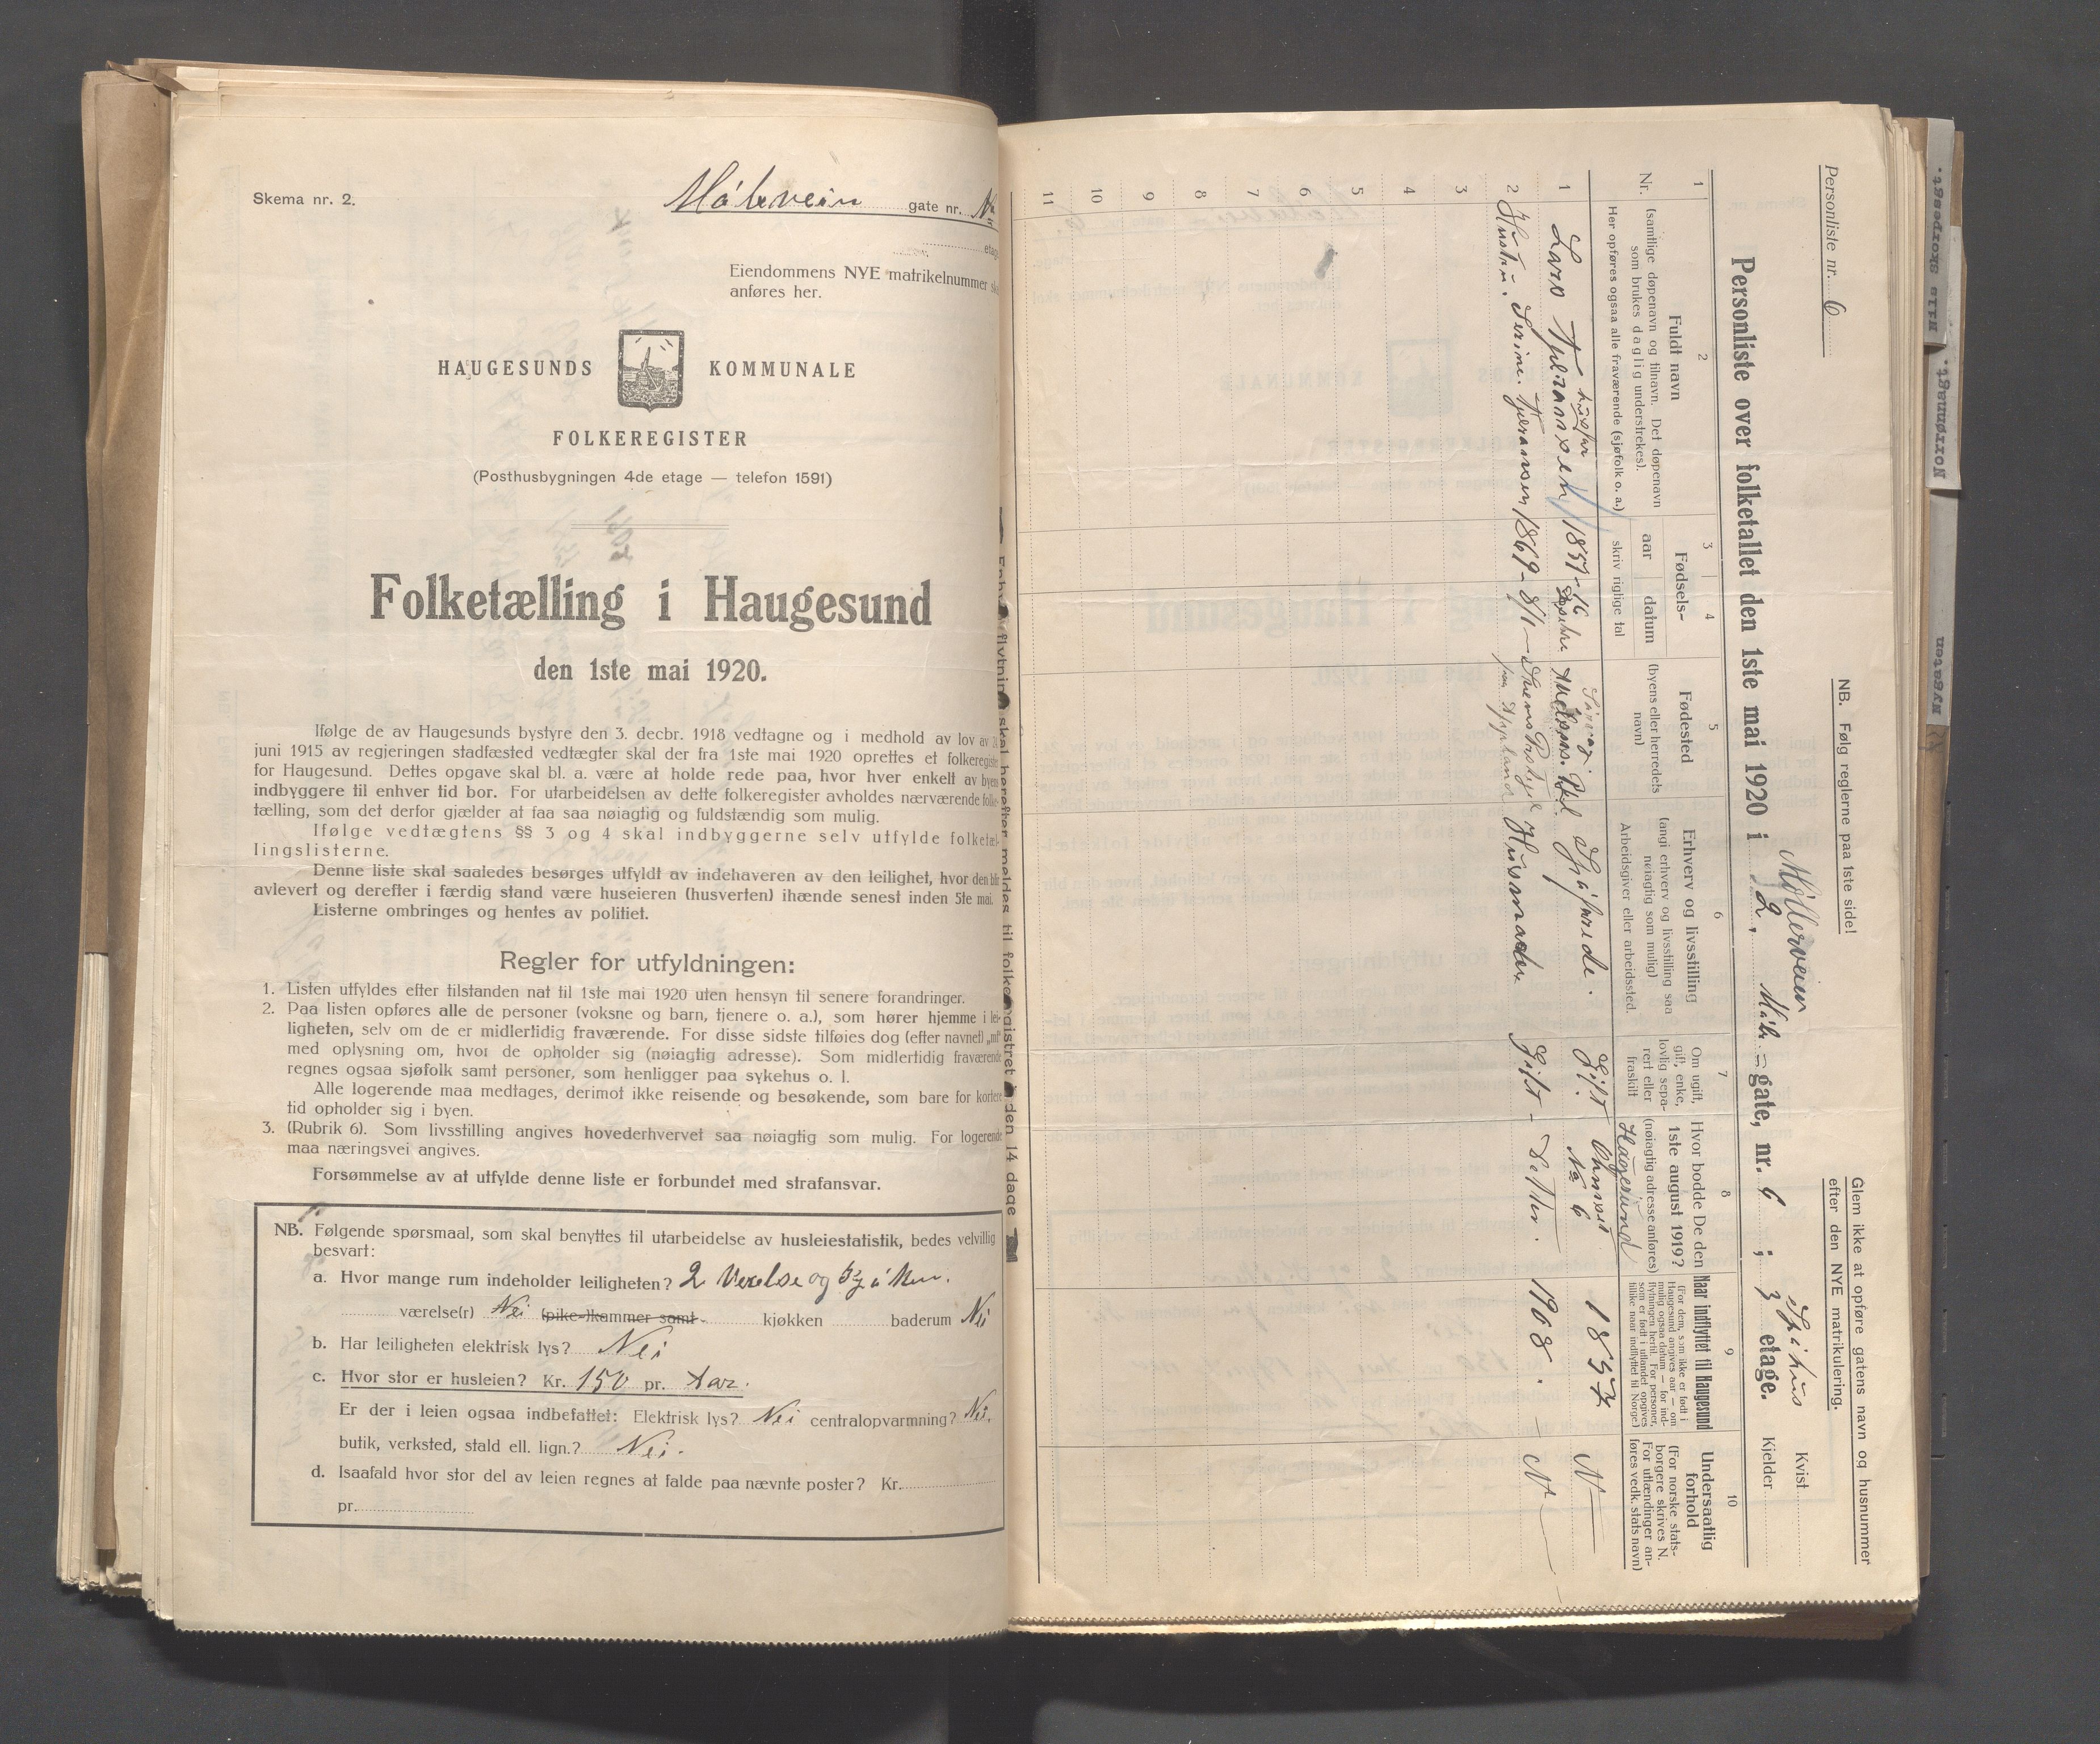 Skema nr. 2.
gate nr. No
etage
Eiendommens NYE matrikelnummer skal
anføres her.
HAUGESUNDS KOMMUNALE
FOLKEREGISTER
(Posthusbygningen 4de etage — telefon 1591)
Folketælling i Haugesund
den 1ste mai 1920.
Ifølge de av Haugesunds bystyre den 3. decbr. 1918 vedtagne og i medhold av lov av
juni 1915 av regjeringen stadfæsted vedtægter skal der fra 1ste mai 1920 oprettes et folkeregister
for Haugesund. Dettes opgave skal bl. a. være at holde rede paa, hvor hver enkelt av byens
indbyggere til enhver tid bor. For utarbeidelsen av dette folkeregister avholdes nærværende folke-
tælling, som det derfor gjælder at faa saa nøiagtig og fuldstændig som mulig.
Ifølge vedtægtens §§ 3 og 4 skal indbyggerne selv utfylde folketæl-
lingslisterne.
Denne liste skal saaledes besørges utfyldt av indehaveren av den leilighet, hvor den blir
avlevert og derefter i færdig stand være huseieren (husverten) ihænde senest inden 5te mai.
Listerne ombringes og hentes av politiet.
Regler for utfyldningen:
1. Listen utfyldes efter tilstanden nat til 1ste mai 1920 uten hensyn til senere forandringer.
2. Paa listen opføres alle de personer (voksne og barn, tjenere o. a.), som hører hjemme i lei-
ligheten, selv om de er midlertidig fraværende. For disse sidste tilføies dog (efter navnet) „mf"
med oplysning om, hvor de opholder sig (nøiagtig adresse). Som midlertidig fraværende
regnes ogsaa sjøfolk samt personer, som henligger paa sykehus o. l.
Alle logerende maa medtages, derimot ikke reisende og besøkende, som bare for kortere
tid opholder sig i byen.
3. (Rubrik 6). Som livsstilling angives hovederhvervet saa nøiagtig som mulig. For logerende
maa næringsvei angives.
Forsømmelse av at utfylde denne liste er forbundet med strafansvar.
NB. Følgende spørsmaal, som skal benyttes til utarbeidelse av husleiestatistik, bedes velvillig
besvart:
a. Hvor mange rum indeholder leiligheten? 2 Verelse og
værelse(r) Nei (pike-)kammer samt kjøkken baderum Nei
b. Har leiligheten elektrisk lys? Nei
c. Hvor stor er husleien? Kr. 150 pr. Aar.
Er der i leien ogsaa indbefattet: Elektrisk lys? Nei centralopvarmning? Nei.
butik, verksted, stald ell. lign.? Nei.
d. Isaafald hvor stor del av leien regnes at falde paa nævnte poster? Kr.
pr.
flytning skal herefter meldes til folkeregistret inden 14 dage
Personliste nr. 6
NB. Følg reglerne paa 1ste side!
Glem ikke at opføre gatens navn og husnummer
efter den NYE matrikulering.
Møllerveien
Kvist
Personliste over folketallet den 1ste mai 1920 i 2, gate, nr. 6 ; 3 etage.
Kjelder
1 2 3 4 5 6 7 8 9 10
Nr.
Fuldt navn
(samtlige døpenavn og tilnavn. Det døpenavn
som brukes daglig understrekes).
Her opføres ogsaa alle fraværende (sjøfolk o. a.)
Fødsels-
aar datum
skriv rigtige tal
Fødested
(byens eller herredets
navn)
Erhverv og livsstilling
(angi erhverv og livsstilling saa
nøiagtig som mulig)
Arbeidsgiver eller arbeidssted.
Om ugift,
gift, enke,
lovlig sepa-
rert eller
fraskilt
Hvor bodde De den
1ste august 1919?
(nøiagtig adresse anføres)
Haugesund
Naar indflyttet til Haugesund
(For dem, som ikke er født i
Haugesund angives aar — om
mulig ogsaa datum — for ind-
flytningen hertil. For personer,
som er født i utlandet opgives
tillike naar indflyttet til Norge)
Undersaatlig
forhold
(For norske stats-
borgere skrives N.
For utlændinger an-
føres vedk. stats navn)
husfar
1 Lars Tjeransen 1857 - 16 Gift No 6 1857 N
2 Hustru. Serine. Tjeransen 1869 - 8/1 Gift - 1908. - N
3
4
5
6
7
8
9
10
11
Nils Skorpesgt.
Norrønnagt.
Nygaten